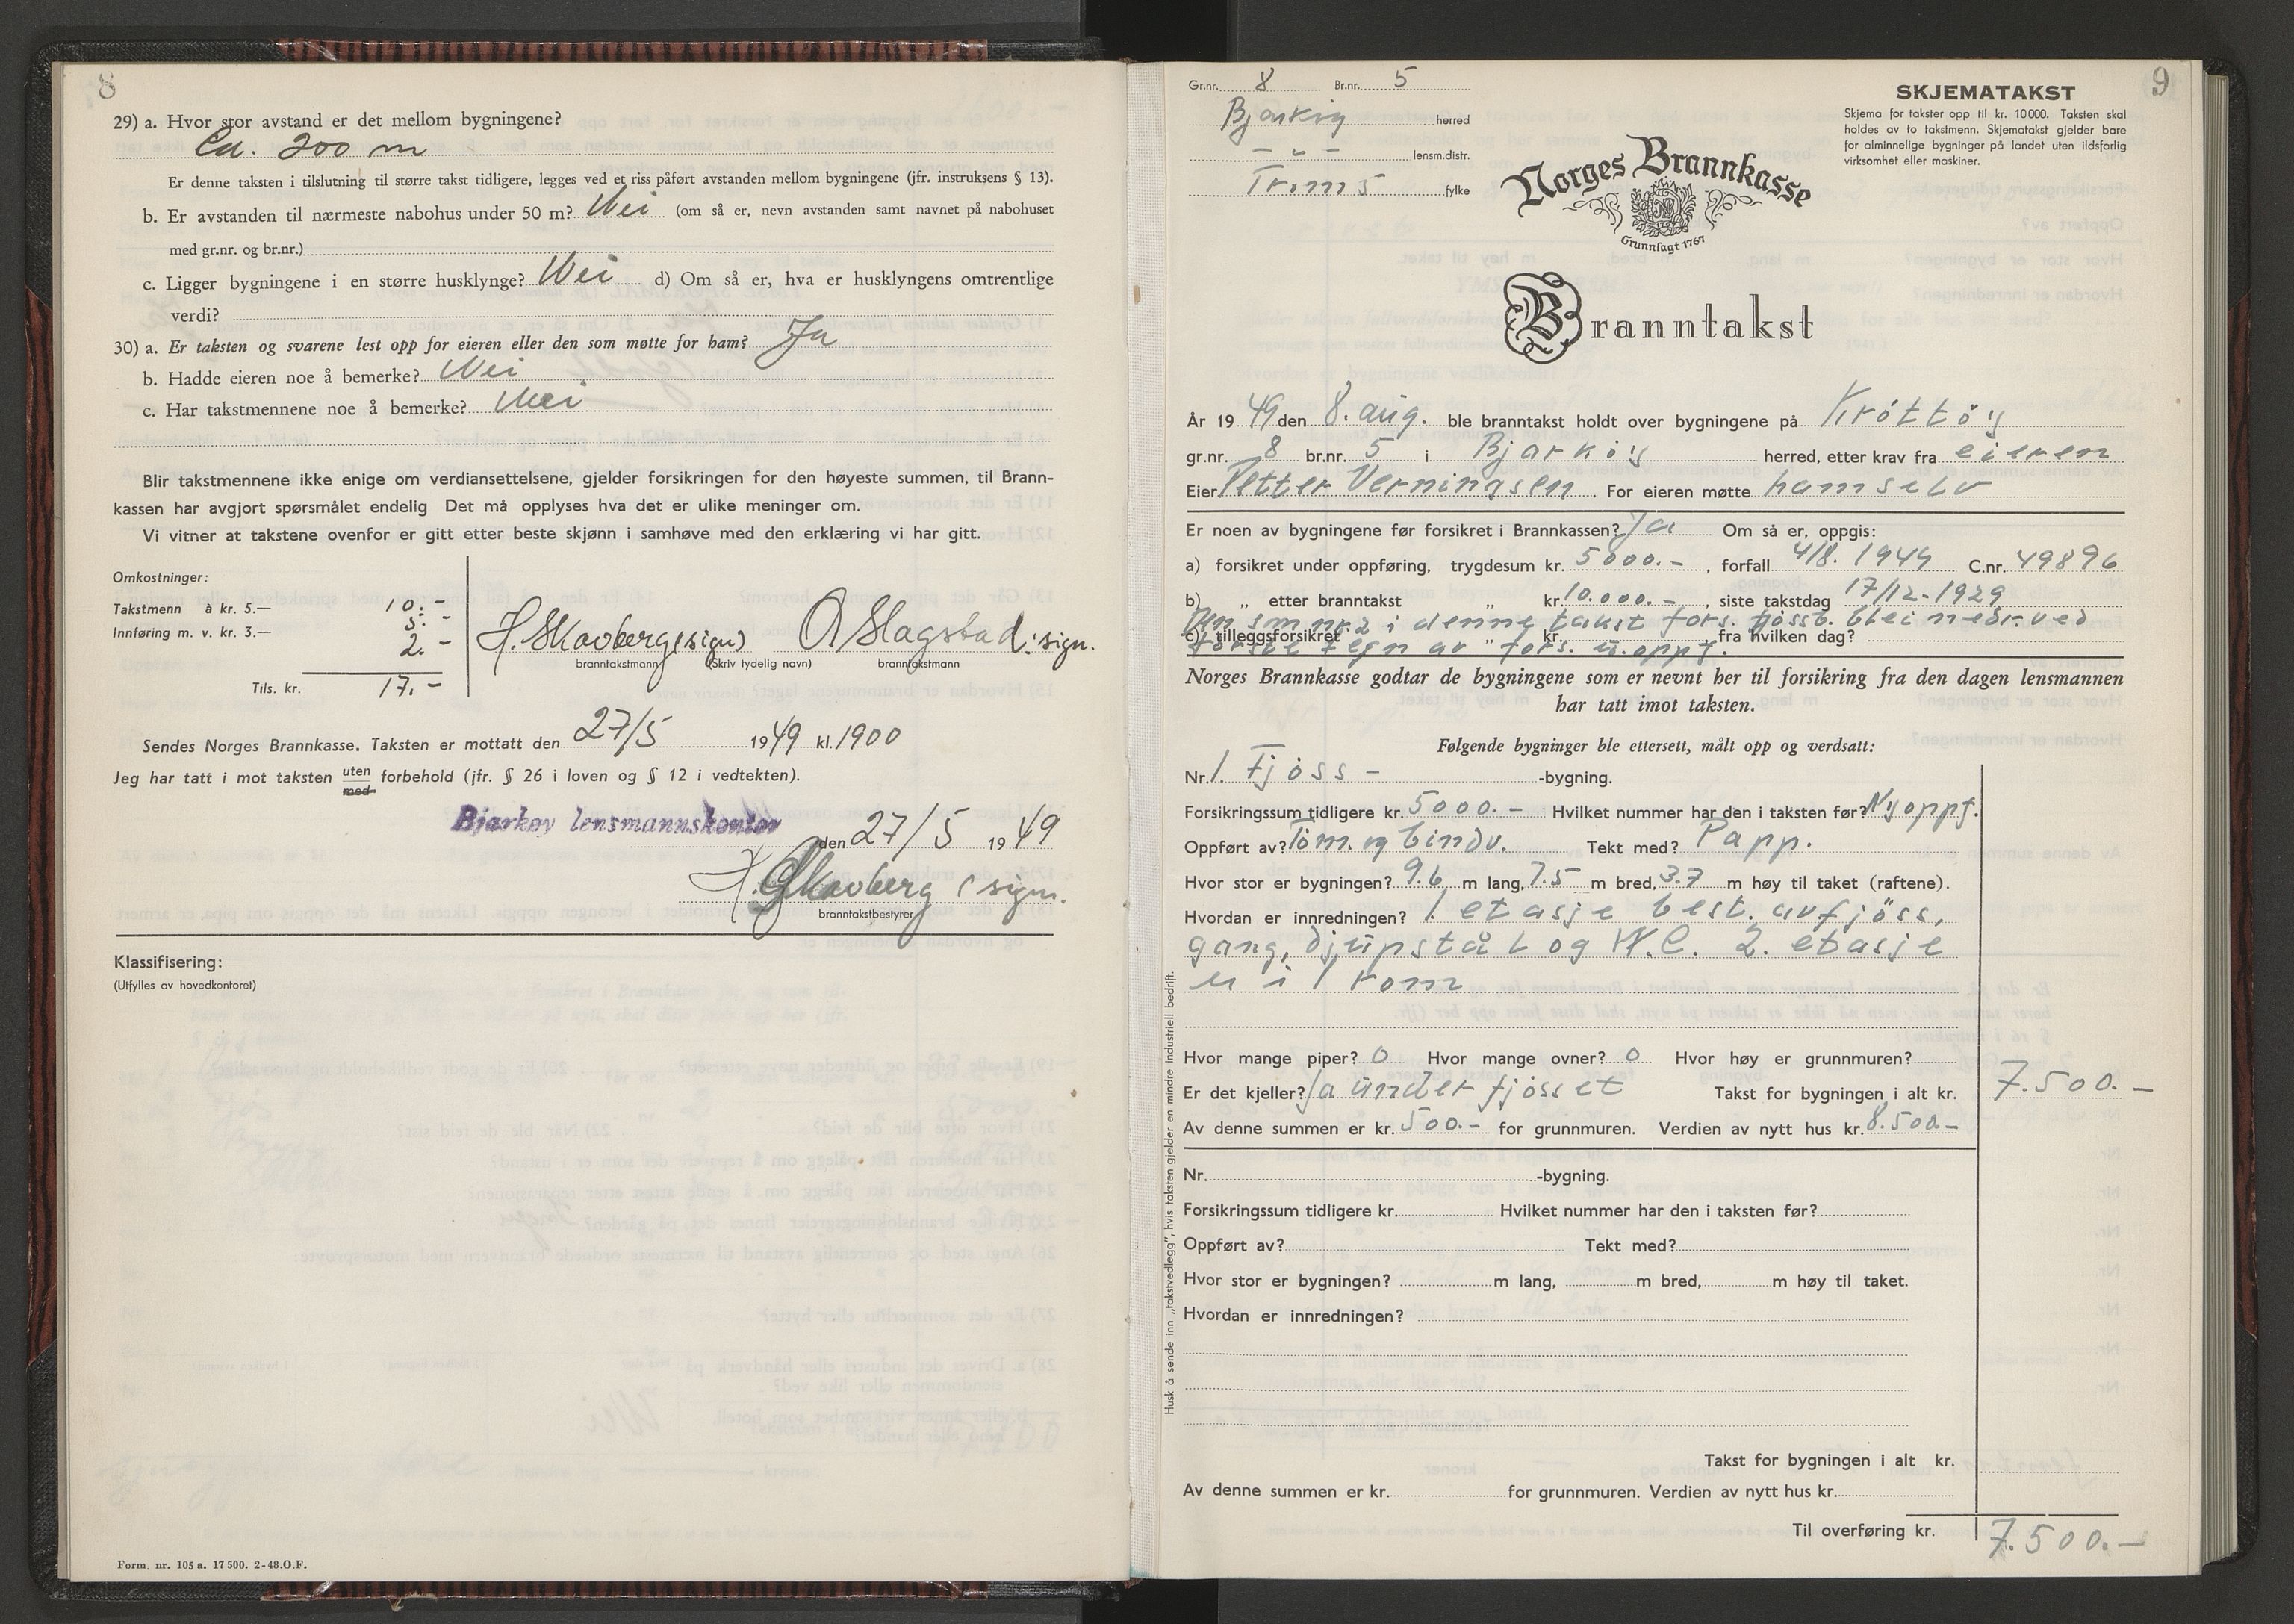 8
29) a. Hvor stor avstand er det mellom bygningene?
Ca. 200 m
Er denne taksten i tilslutning til større takst tidligere, legges ved et riss påført avstanden mellom bygningene (jfr. instruksens § 13).
b. Er avstanden til nærmeste nabohus under 50 m? Nei (om så er, nevn avstanden samt navnet på nabohuset
med gr.nr. og br.nr.)
c. Ligger bygningene i en større husklynge? Nei d) Om så er, hva er husklyngens omtrentlige
verdi?
30) a. Er taksten og svarene lest opp for eieren eller den som møtte for ham? Ja
b. Hadde eieren noe å bemerke? Nei
c. Har takstmennene noe å bemerke? Nei
Blir takstmennene ikke enige om verdiansettelsene, gjelder forsikringen for den høyeste summen, til Brann-
kassen har avgjort spørsmålet endelig Det må opplyses hva det er ulike meninger om.
Vi vitner at takstene ovenfor er gitt etter beste skjønn i samhøve med den erklæring vi har gitt.
Omkostninger:
Takstmenn à kr. 5.— 10.-
5.-
Innføring m. v. kr. 3.— 2.-
Tils. kr. 17.-
H. Skavberg (sign) O Slagstad: sign.
branntakstmann (Skriv tydelig navn) branntakstmann
Sendes Norges Brannkasse. Taksten er mottatt den 27/5 1949 kl. 1900
Jeg har tatt i mot taksten uten forbehold (jfr. § 26 i loven og § 12 i vedtekten).
med
Bjarkøy lensmannskontor den 27/5 1949
H. Skavberg (sign.
branntakstbestyrer
Klassifisering:
(Utfylles av hovedkontoret)
Form. nr. 105 a. 17 500. 2-48.O.F.
9
Gr.nr. 8 Br.nr. 5
Bjarköy herred
- " - lensm.distr.
Troms fylke
SKJEMATAKST
Skjema for takster opp til kr. 10000. Taksten skal
holdes av to takstmenn. Skjematakst gjelder bare
for alminnelige bygninger på landet uten ildsfarlig
virksomhet eller maskiner.
Norges Brannkasse
Grunnlagt 1767
Branntakst
År 1949 den 8. aug. ble branntakst holdt over bygningene på Kröttöy
gr.nr. 8 br.nr. 5 i Bjarköy herred, etter krav fra eieren
Eier Petter Verningsen. For eieren møtte ham selv
Er noen av bygningene før forsikret i Brannkassen? Ja Om så er, oppgis:
a) forsikret under oppføring, trygdesum kr. 5000.-, forfall 4/8. 1949 C.nr. 49896
b) „ etter branntakst „ kr. 10.000.-, siste takstdag 17/12-1929
i denne takst fors. fjössb. blei nedr. ved
c) tilleggsforsikret kr. , fra hvilken dag?
tegn av fors. u. oppf.
Norges Brannkasse godtar de bygningene som er nevnt her til forsikring fra den dagen lensmannen
har tatt imot taksten.
Følgende bygninger ble ettersett, målt opp og verdsatt:
Nr. 1. Fjöss- -bygning.
Forsikringssum tidligere kr. 5000.- Hvilket nummer har den i taksten før? Ny oppf.
Oppført av? Töm. og bindv. Tekt med? Papp.
Hvor stor er bygningen? 9.6 m lang, 7.5 m bred, 3.7 m høy til taket (raftene).
Hvordan er innredningen? 1. etasje best. av fjöss,
gang, djupstål og W.C. 2. etasje
er i 1 rom
Hvor mange piper? 0 Hvor mange ovner? 0 Hvor høy er grunnmuren?
Er det kjeller? Ja under fjösset Takst for bygningen i alt kr. 7.500.-
Av denne summen er kr. 500.- for grunnmuren. Verdien av nytt hus kr. 8.500.-
Nr. -bygning.
Forsikringssum tidligere kr. Hvilket nummer har den i taksten før?
Oppført av? Tekt med?
Hvor stor er bygningen? m lang, m bred, m høy til taket.
Hvordan er innredningen?
Takst for bygningen i alt kr.
Av denne summen er kr. for grunnmuren. Verdien av nytt hus kr.
Til overføring kr. 7.500.-
Husk å sende inn „takstvedlegg”, hvis taksten gjelder en mindre industriell bedrift.